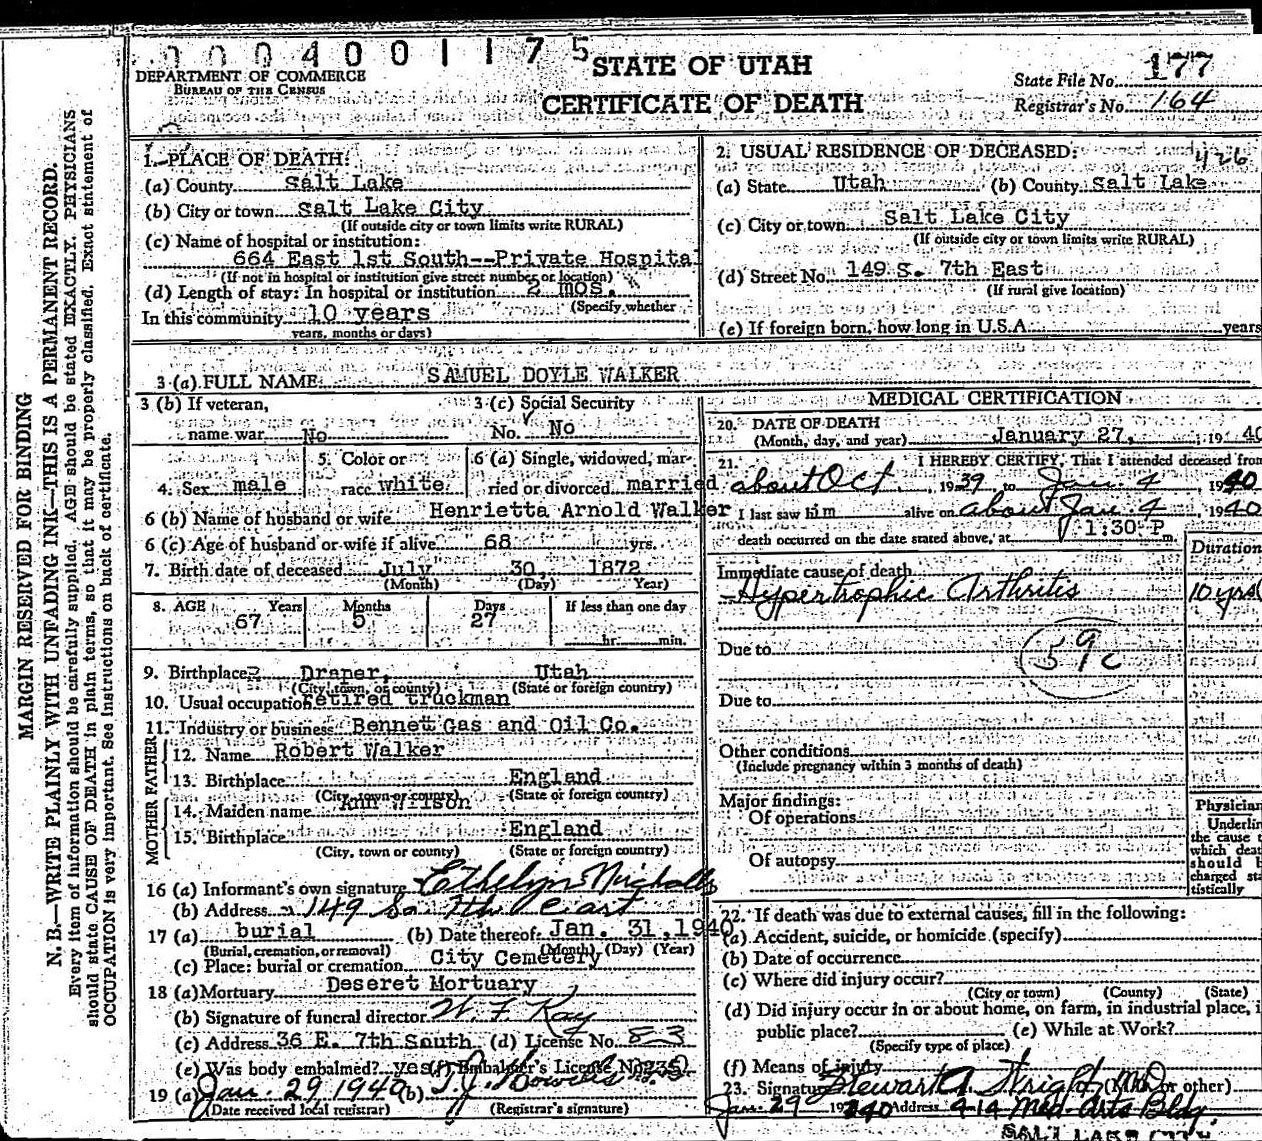 0004001175
STATE OF UTAH
CERTIFICATE OF DEATH
DEPARTMENT OF COMMERCE
BUREAU OF THE CENSUS
State File No. 177
Registrar's No. 164
MARGIN RESERVED FOR BINDING
N. B.—WRITE PLAINLY WITH UNFADING INK—THIS IS A PERMANENT RECORD.
Every item of information should be carefully supplied. AGE should be stated EXACTLY. PHYSICIANS
should state CAUSE OF DEATH in plain terms, so that it may be properly classified. Exact statement of
OCCUPATION is very important. See instructions on back of certificate.
1. PLACE OF DEATH:
(a) County Salt Lake
(b) City or town Salt Lake City
(If outside city or town limits write RURAL)
(c) Name of hospital or institution:
664 East 1st South--Private Hospital
(If not in hospital or institution give street number or location)
(d) Length of stay: In hospital or institution 2 mos.
(Specify whether
In this community 10 years
years, months or days)
2. USUAL RESIDENCE OF DECEASED: 426
(a) State Utah (b) County Salt Lake
(c) City or town Salt Lake City
(If outside city or town limits write RURAL)
(d) Street No. 149 S. 7th East
(If rural give location)
(e) If foreign born, how long in U.S.A. years
3 (a) FULL NAME SAMUEL DOYLE WALKER
3 (b) If veteran,
name war No
3 (c) Social Security
No. No
4. Sex male
5. Color or
race white
6 (a) Single, widowed, mar-
ried or divorced married
6 (b) Name of husband or wife Henrietta Arnold Walker
6 (c) Age of husband or wife if alive 68 yrs.
7. Birth date of deceased July 30, 1872
(Month) (Day) Year)
8. AGE Years Months Days If less than one day
67 5 27 hr. min.
9. Birthplace Draper, Utah
(City, town, or county) (State or foreign country)
10. Usual occupation retired truckman
11. Industry or business Bennet Gas and Oil Co.
FATHER
12. Name Robert Walker
13. Birthplace England
(City, town or county) (State or foreign country)
MOTHER
14. Maiden name Ann Wilson
15. Birthplace England
(City, town or county) (State or foreign country)
16 (a) Informant's own signature Ethelyn Nicholls
(b) Address 149 So. 7th East
17 (a) burial (b) Date thereof Jan. 31, 1940
(Burial, cremation, or removal) (Month) (Day) (Year)
(c) Place: burial or cremation City Cemetery
18 (a) Mortuary Deseret Mortuary
(b) Signature of funeral director W. F. Kay
(c) Address 36 E. 7th South (d) License No. 83
(e) Was body embalmed? yes (f) Embalmer's License No. 235
19 (a) Jan. 29, 1940 (b)
(Date received local registrar) (Registrar's signature)
MEDICAL CERTIFICATION
20. DATE OF DEATH
(Month, day, and year) January 27, 1940
21. I HEREBY CERTIFY, That I attended deceased from
about Oct, 1939 to Jan. 4 1940
I last saw him alive on about Jan. 4, 1940
death occurred on the date stated above, at 1:30 P m.
Duration
Immediate cause of death
Hypertrophic Arthritis 10 yrs
Due to 59c
Due to
Other conditions
(Include pregnancy within 3 months of death)
Major findings:
Of operations
Of autopsy
Physician
Underlin
the cause t
which deat
should b
charged sta
tistically
22. If death was due to external causes, fill in the following:
(a) Accident, suicide, or homicide (specify)
(b) Date of occurrence
(c) Where did injury occur?
(City or town) (County) (State)
(d) Did injury occur in or about home, on farm, in industrial place, i
public place? (e) While at Work?
(Specify type of place)
(f) Means of injury
23. Signature Stewart A. Wright (MD or other)
Jan. 29 1940 Address 914 Med-Arts Bldg.
SALT LAKE CITY